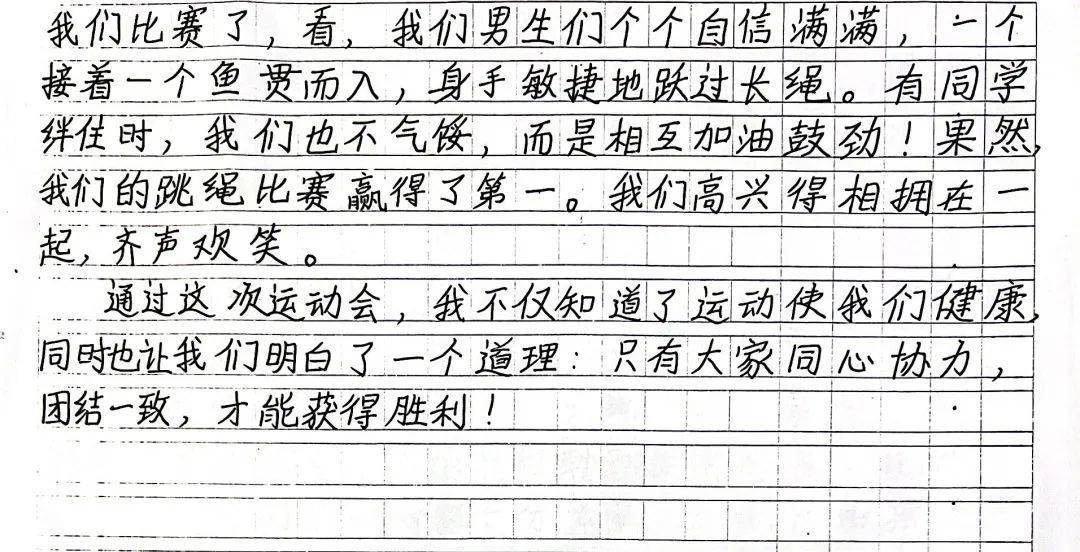 我们比赛了，看，我们男生们个个自信满满，一个
接着一个鱼贯而入，身手敏捷地跃过长绳。有同学
绊住时，我们也不气馁，而是相互加油鼓劲！果然，
我们的跳绳比赛赢得了第一。我们高兴得相拥在一
起，齐声欢笑。
通过这次运动会，我不仅知道了运动使我们健康，
同时也让我们明白了一个道理：只有大家同心协力，
团结一致，才能获得胜利！